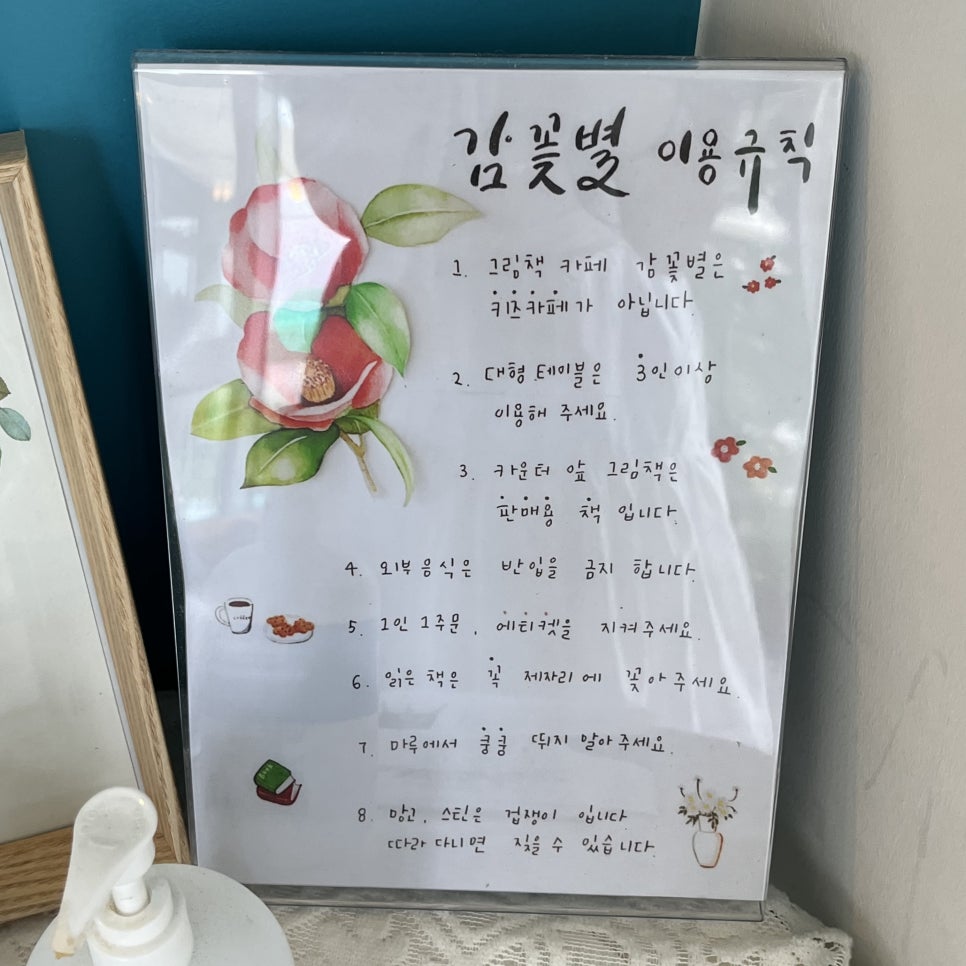 감꽃별 이용규칙
1. 그림책 카페 감꽃별은
키즈카페가 아닙니다.
2. 대형 테이블은 3인이상
이용해 주세요.
3. 카운터 앞 그림책은
판매용 책 입니다.
4. 외부음식은 반입을 금지 합니다.
5. 1인 1주문, 에티켓을 지켜주세요.
6. 읽은 책은 꼭 제자리에 꽂아주세요.
7. 마루에서 쿵쿵 뛰지 말아주세요.
8. 망고, 스틴은 겁쟁이 입니다
따라 다니면 짖을 수 있습니다.